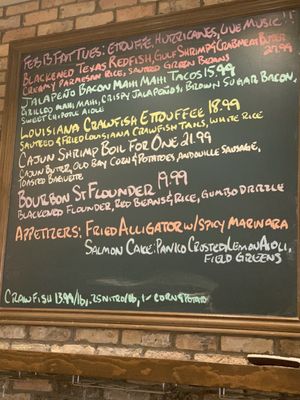 FEB 13 FAT TUES: ETOUFFE, HURRICANES, LIVE MUSIC!!
BLACKENED TEXAS REDFISH, GULF SHRIMP & CRABMEAT BUTTER
CREAMY PARMESAN RICE, SAUTEED GREEN BEANS 27.99
JALAPEÑO BACON MAHI MAHI TACOS 15.99
GRILLED MAHI MAHI, CRISPY JALAPEÑOS, BROWN SUGAR BACON,
SWEET CHIPOTLE AIOLI
LOUISIANA CRAWFISH ETOUFFEE 18.99
SAUTEED & FRIED LOUISIANA CRAWFISH TAILS, WHITE RICE
CAJUN SHRIMP BOIL FOR ONE 21.99
CAJUN BUTTER, OLD BAY CORN & POTATOES, ANDOUILLE SAUSAGE,
TOASTED BAGUETTE
BOURBON ST FLOUNDER 19.99
BLACKENED FLOUNDER, RED BEANS & RICE, GUMBO DRIZZLE
APPETIZERS: FRIED ALLIGATOR W/SPICY MARINARA
SALMON CAKE: PANKO CRUSTED, LEMON AIOLI,
FIELD GREENS
CRAWFISH 13.99/lb, CORN & POTATO